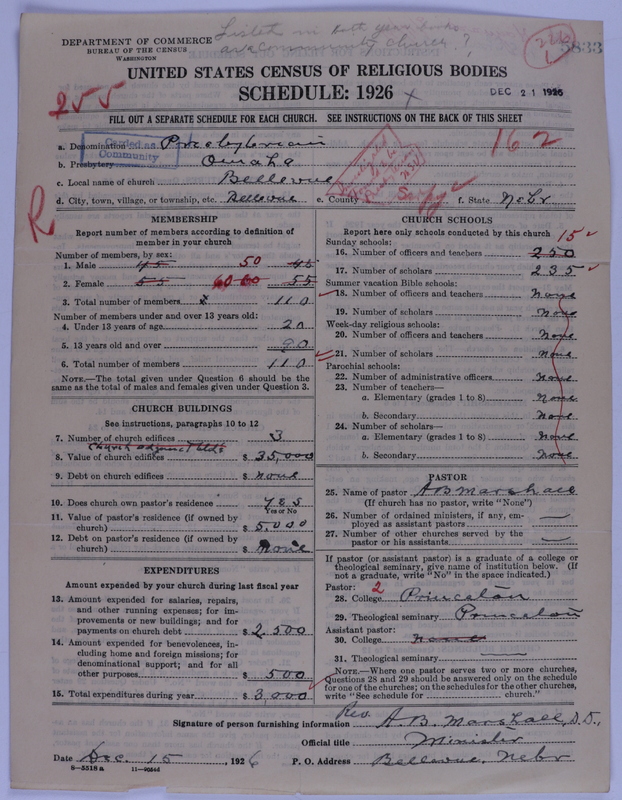 Listed in both year books
as a community church?
DEPARTMENT OF COMMERCE
BUREAU OF THE CENSUS
WASHINGTON
5833
UNITED STATES CENSUS OF RELIGIOUS BODIES
SCHEDULE: 1926
DEC 21 1926
255
FILL OUT A SEPARATE SCHEDULE FOR EACH CHURCH. SEE INSTRUCTIONS ON THE BACK OF THIS SHEET
162
a. Denomination Presbyterian
Coded as
Community
b. Presbytery Omaha
c. Local name of church Bellevue
d. City, town, village, or township, etc. Bellevue e. County Sarpy f. State Nebr
R
MEMBERSHIP
Report number of members according to definition of
member in your church
Number of members, by sex:
1. Male 45 50 45
2. Female 55 60 60 55
3. Total number of members x 110
Number of members under and over 13 years old:
4. Under 13 years of age 20
5. 13 years old and over 90
6. Total number of members 110
NOTE.—The total given under Question 6 should be
the same as the total of males and females given under Question 3.
CHURCH BUILDINGS
See instructions, paragraphs 10 to 12
7. Number of church edifices 3
Church adjunct bldg
8. Value of church edifices $ 35,000
9. Debt on church edifices $ none
10. Does church own pastor's residence yes
Yes or No
11. Value of pastor's residence (if owned by
church) $ 5,000
12. Debt on pastor's residence (if owned by
church) $ None
EXPENDITURES
Amount expended by your church during last fiscal year
13. Amount expended for salaries, repairs,
and other running expenses; for im-
provements or new buildings; and for
payments on church debt $ 2,500
14. Amount expended for benevolences, in-
cluding home and foreign missions; for
denominational support; and for all
other purposes $ 500
15. Total expenditures during year $ 3,000
CHURCH SCHOOLS
Report here only schools conducted by this church
Sunday schools: 15
16. Number of officers and teachers 250
17. Number of scholars 235
Summer vacation Bible schools:
18. Number of officers and teachers None
19. Number of scholars None
Week-day religious schools:
20. Number of officers and teachers None
21. Number of scholars None
Parochial schools:
22. Number of administrative officers None
23. Number of teachers—
a. Elementary (grades 1 to 8) None
b. Secondary None
24. Number of scholars—
a. Elementary (grades 1 to 8) None
b. Secondary None
PASTOR
25. Name of pastor A B Marshall
(If church has no pastor, write "None")
26. Number of ordained ministers, if any, em-
ployed as assistant pastors —
27. Number of other churches served by the
pastor or his assistants —
If pastor (or assistant pastor) is a graduate of a college or
theological seminary, give name of institution below. (If
not a graduate, write "No" in the space indicated.)
Pastor: 2
28. College Princeton
29. Theological seminary Princeton
Assistant pastor:
30. College none
31. Theological seminary
NOTE.—Where one pastor serves two or more churches,
Questions 28 and 29 should be answered only on the schedule
for one of the churches; on the schedules for the other churches,
write "See schedule for church."
Signature of person furnishing information Rev. A. B. Marshall, D.D.,
Official title Minister
Date Dec. 15, 1926 P. O. Address Bellevue, Nebr
8—5518a 11—9054d